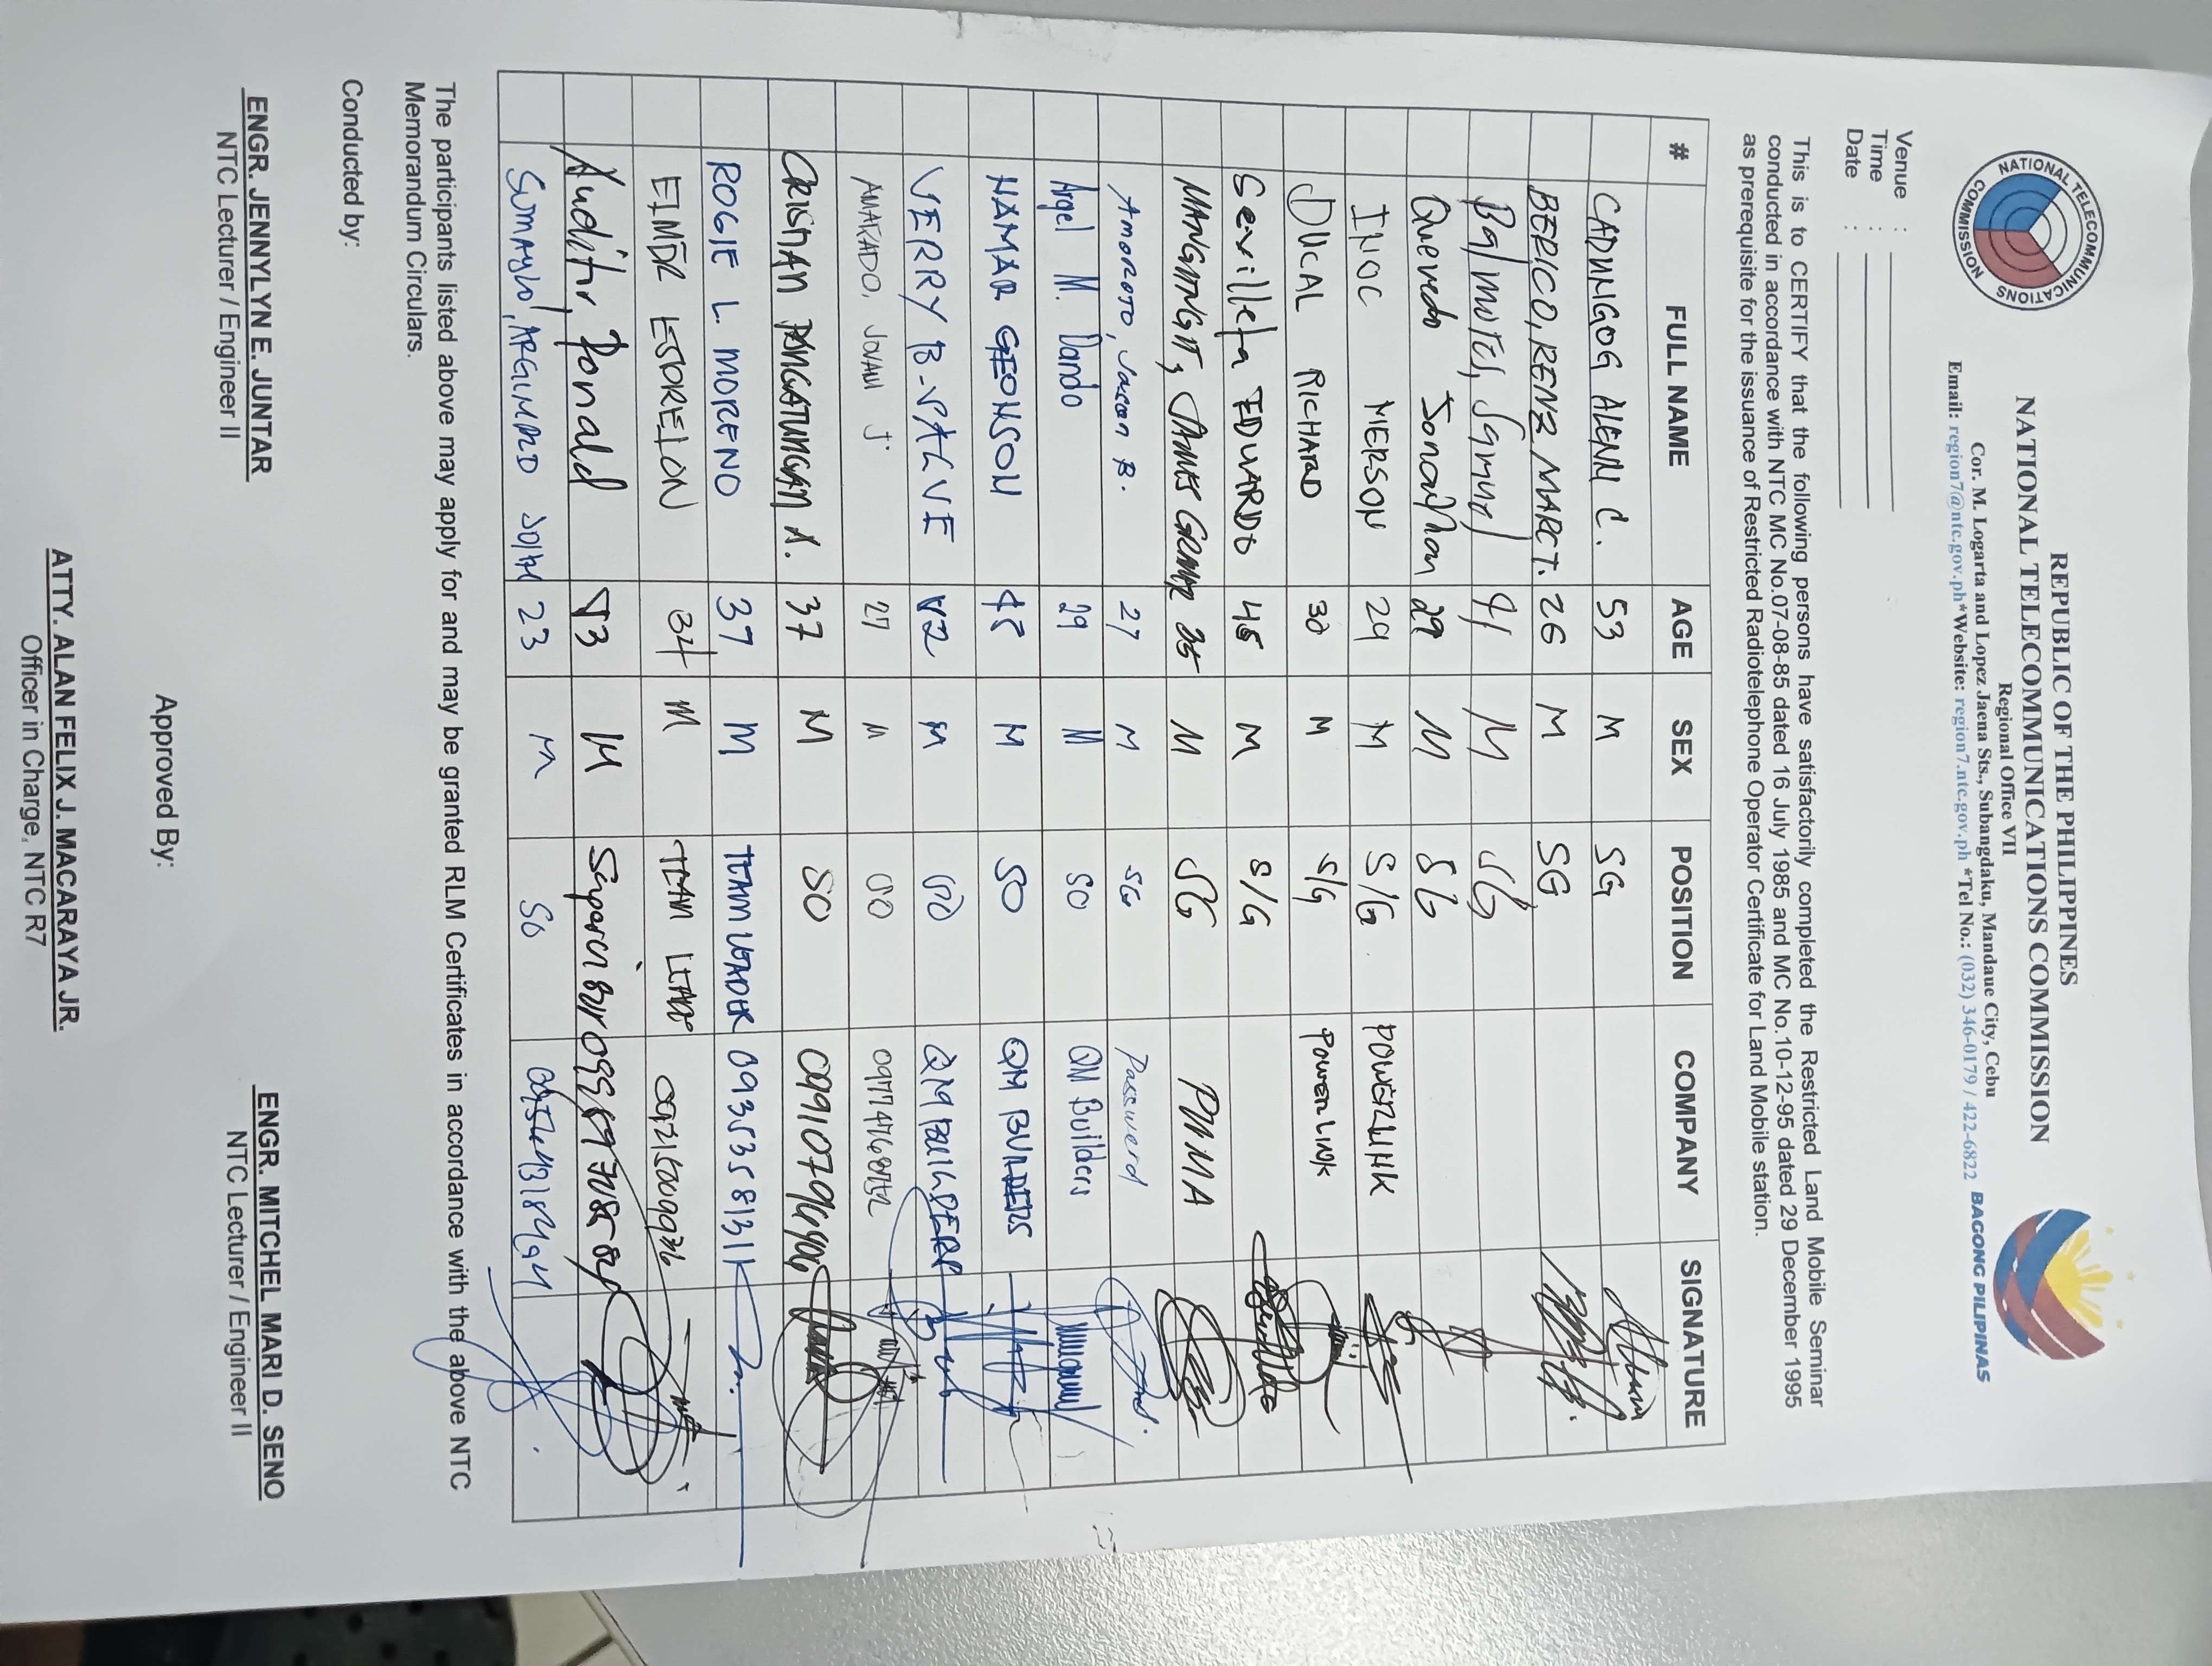 NATIONAL TELECOMMUNICATIONS COMMISSION
REPUBLIC OF THE PHILIPPINES
NATIONAL TELECOMMUNICATIONS COMMISSION
Regional Office VII
Cor. M. Logarta and Lopez Jaena Sts., Subangdaku, Mandaue City, Cebu
Email: region7@ntc.gov.ph*Website: region7.ntc.gov.ph *Tel No.: (032) 346-0179 / 422-6822
BAGONG PILIPINAS
Venue :
Time :
Date :
This is to CERTIFY that the following persons have satisfactorily completed the Restricted Land Mobile Seminar
conducted in accordance with NTC MC No.07-08-85 dated 16 July 1985 and MC No.10-12-95 dated 29 December 1995
as prerequisite for the issuance of Restricted Radiotelephone Operator Certificate for Land Mobile station.
# FULL NAME AGE SEX POSITION COMPANY SIGNATURE
CADUNGOG ALENN C. 53 M SG
BERICO, RENZ MARC T. 26 M SG
Balmotes, Samuel 41 M SG
Quevedo Jonathan 29 M SG
INOC MERSON 29 M S/G POWERLINK
DUCAL RICHARD 30 M S/G Powerlink
Sevilleta EDUARDO 45 M S/G
MANGINGIT, JAMES 35 M SG PMMA
AMOROTO, Jason B. 27 M SG Password
Argel M. Dando 29 M SO QM Builders
NAMAR GEONSON 45 M SO QM BUILDERS
VERRY B. SALVE 42 M SO QM BUILDERS
AMARADO, JOVAN J 27 M SO
CRISTIAN PANGATUNGAN A. 37 M SO
ROGIE L. MORENO 37 M TEAM LEADER 09353581311
ELMER ESTORELON 34 M TEAM LEADER
Auditor, Ronald 53 M
Sumaylo, 23 M SO
The participants listed above may apply for and may be granted RLM Certificates in accordance with the above NTC
Memorandum Circulars.
Conducted by:
ENGR. JENNYLYN E. JUNTAR
NTC Lecturer / Engineer II
ENGR. MITCHEL MARI D. SENO
NTC Lecturer / Engineer II
Approved By:
ATTY. ALAN FELIX J. MACARAYA JR.
Officer in Charge, NTC R7